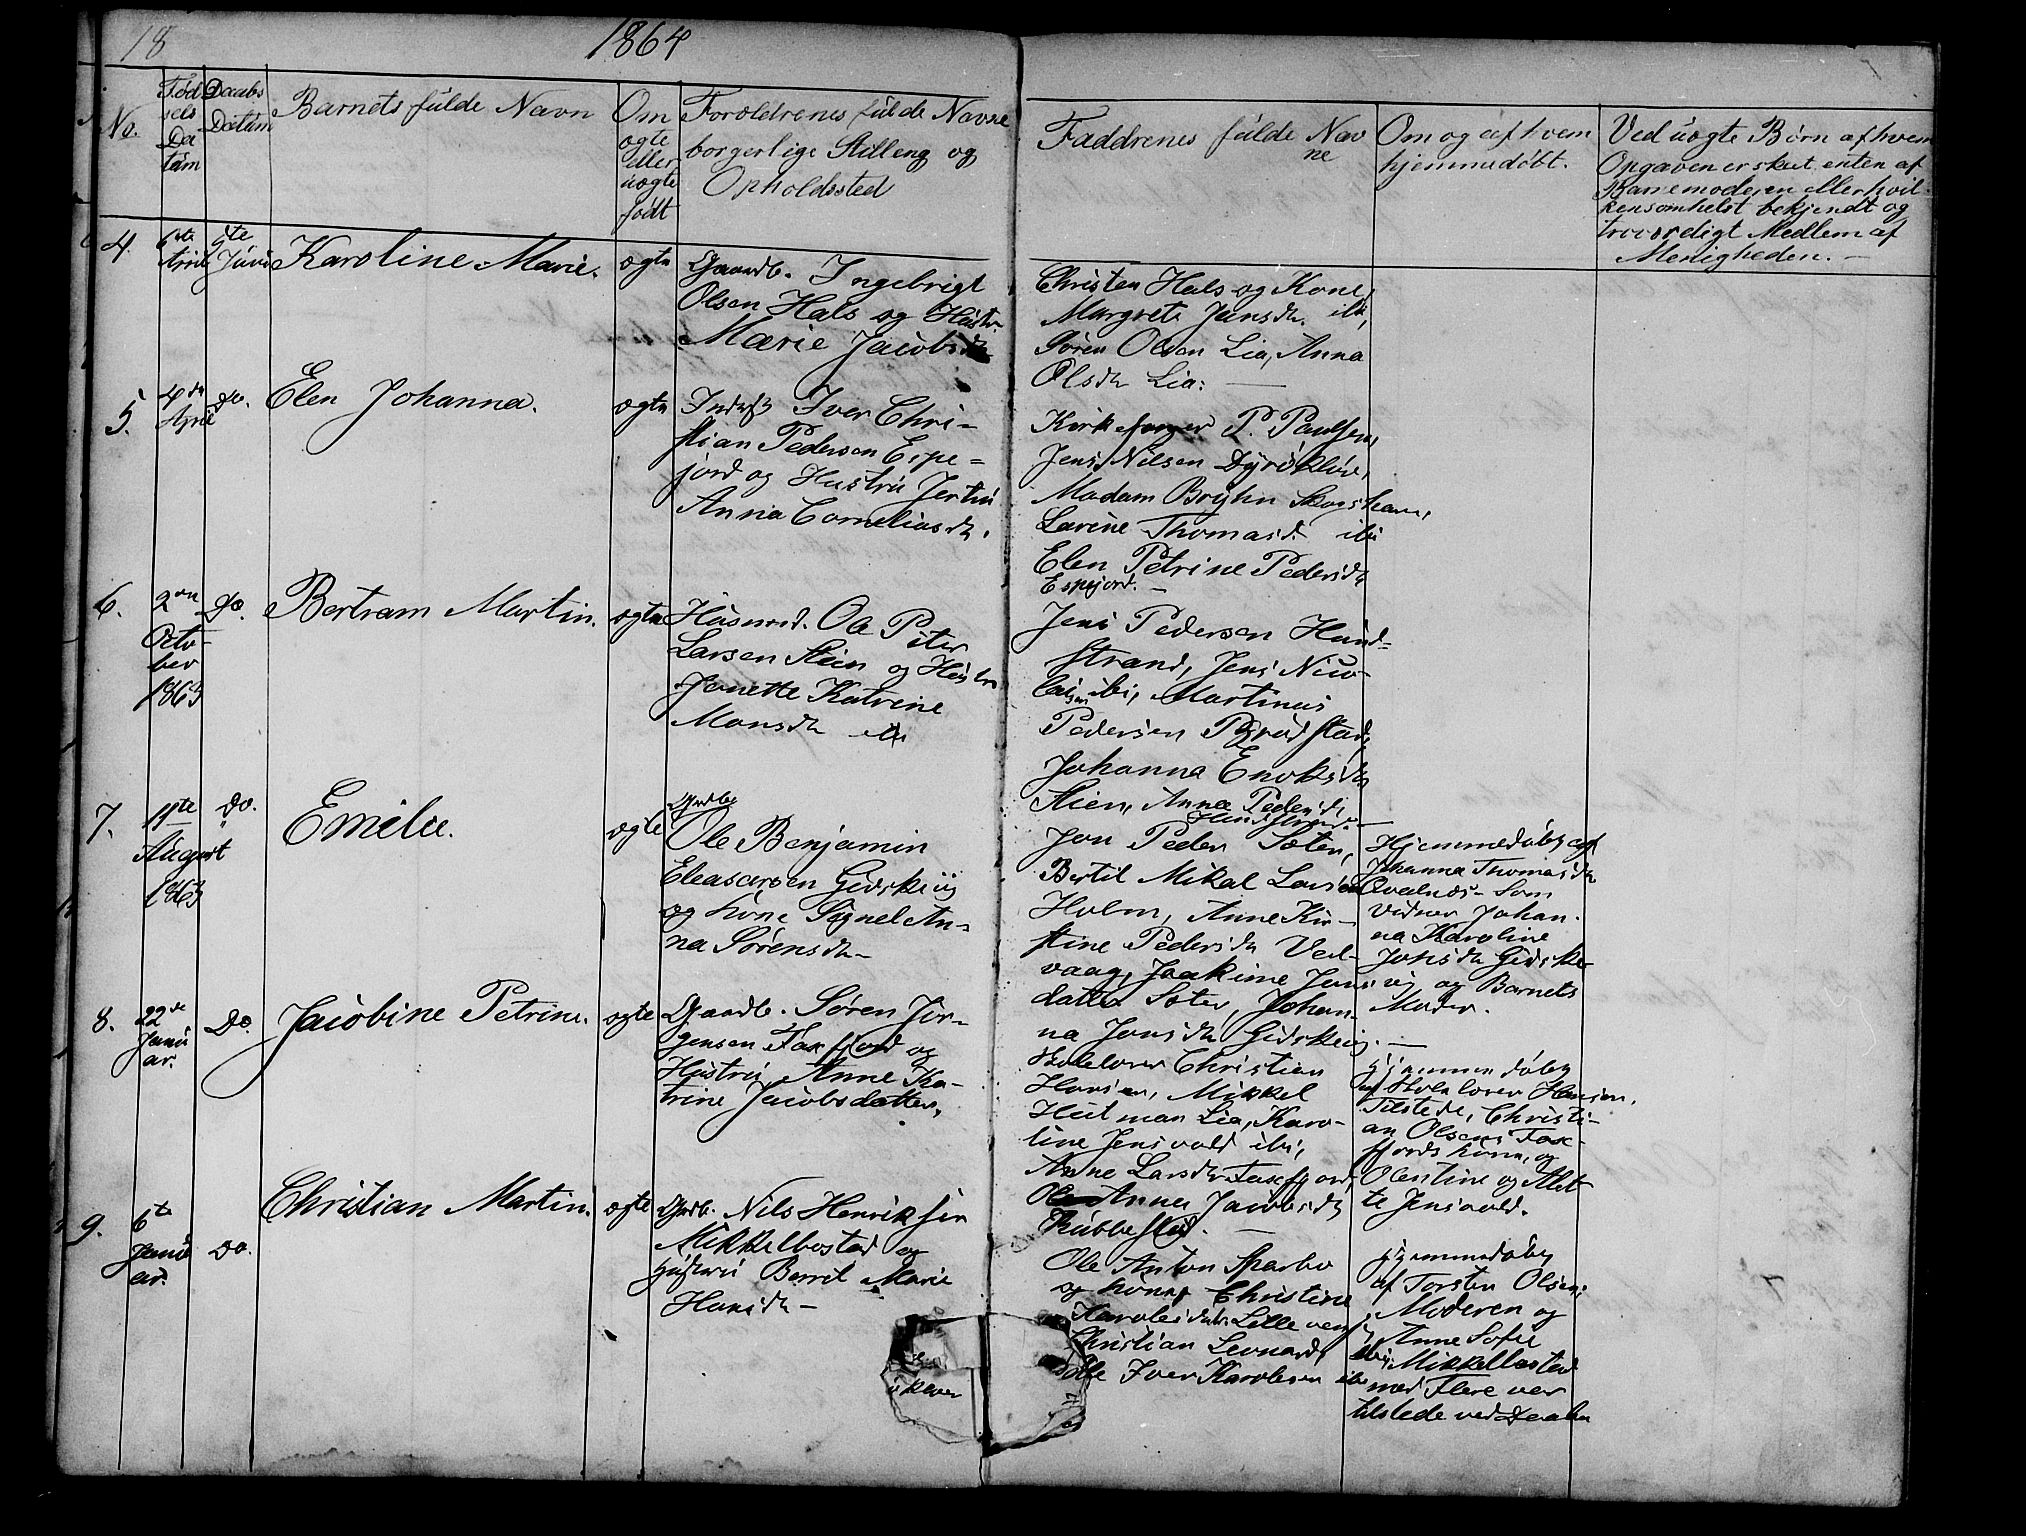 18
1864
No.
Fød
sels
Da
tum
Daabs
Datum
Barnets fulde Navn
Om
ægte
eller
uægte
født
Forældrenes fulde Navne
borgerlige Stilleng og
Opholdssted
Faddrenes fulde Nav
ne
Om og af hvem
hjemmedøbt.
Ved uægte Børn af hvem
Opgaven er skeet enten af
Barnemoderen eller hvil-
kensomhelst bekjendt og
troværdigt Medlem af
Menigheden. -
4.
6te
April
5te
Juni
Karoline Marie.
ægte
Gaardb. Ingebrigt
Olsen Hals og Hustr.
Marie Jacobsd.
Christen Hals og Kone
Margrete Jensdr. ibi,
Søren Olsen Lia, Anna
Olsdr Lia.
5.
4de
April
do.
Elen Johanna.
ægte
Inderst Iver Chri-
stian Pedersen Espe=
jord og Hustru Jertru
Anna Corneliasdr.
Kirkesanger P. Paulsen,
Jens Nilsen Dyrøkløv,
Madam Bryhn Skogshavn,
Larine Thomasd. ibi
Elen Petrine Pedersdr
Espejord. -
6.
2den
Octo-
ber
1863
Do.
Bertram Martin.
ægte
Husmd. Ole Peter
Larsen Stien og Hustru
Janette Katrine
Monsdr ibi
Jens Pedersen Hund-
strand, Jens Nico-
laisen ibi, Martinus
Pedersen Brudstad,
Johanna Enoksdr
Stien, Anna Pedersd.
Hundstrand. -
7.
19te
August
1863
Do.
Emilie.
ægte
Gardbr
Ole Benjamin
Eleasarsen Gidskeiig
og kone Signel An-
na Sørensdr -
Jon Peder Sæter,
Bertil Mikal Larsen
Holm, Anne Kir-
stine Pedersdr Ved-
vaag, Joakime Jons
datter Sæter, Johan-
na Jonsdr Gidskeiig. -
Hjemmedøbt af
Johanna Thomasdr
Qvalnæs - Som
Vidner Johan-
na Karoline
Jonsdr Gidske-
iig og Barnets
Moder.
8.
22de
Janu
ar.
Do.
Jacobine Petrine.
ægte
Gaardb. Søren Jør-
gensen Faxfjord og
Hustru Anne Ka-
trine Jacobsdatter.
Skolelærer Christian
Hansen, Mikkel
Hutman Lia, Karo-
line Jensvold ibi,
Anne Larsdr Faxfjord,
Anne Jacobsdr
Kubbestad. -
Hjemmedøbt
af Skolelærer Hansen.
Tilstede, Christi-
an Olsens Fax-
fjords kone, og
Olentine og Alet-
te Jensvold.
9.
6te
Janu
ar.
Do.
Christian Martin.
ægte
Gardb. Nils Henriksen
Mikkelbostad og
Hustru Berret Marie
Hansdr -
Ole Anton Sparbo
og kone Christine
Karolesdatr Lilleven
Christian Leonard
Ole Iver Karolesen ibi
Hjemmedøbt
af Torsten Olsen,
Moderen og
Anne Sofie
ibi, Mikkelbostad
med Flere var
tilstede ved Daaben